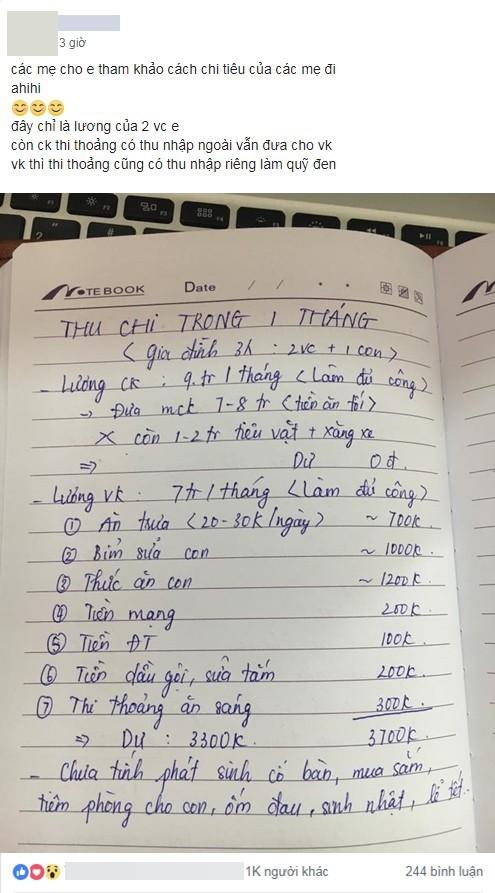 3 giờ
các mẹ cho e tham khảo cách chi tiêu của các mẹ đi
ahihi
đây chỉ là lương của 2 vc e
còn ck thi thoảng có thu nhập ngoài vẫn đưa cho vk
vk thì thi thoảng cũng có thu nhập riêng làm quỹ đen
NOTEBOOK Date / /
THU CHI TRONG 1 THÁNG
< Gia đình 3k : 2vc + 1 con >
- Lương CK : 9.tr / tháng < Làm đủ công >
→ Đưa mck 7-8 tr < tiền ăn tối >
X còn 1-2 tr tiêu vặt + xăng xe
⇒ Dư 0 đ.
- Lương VK : 7tr / tháng < Làm đủ công >
① Ăn trưa < 20-30k/ngày > ~ 700k.
② Bỉm sữa con ~ 1000k.
③ Thức ăn con ~ 1200k.
④ Tiền mạng 200k.
⑤ Tiền ĐT 100k.
⑥ Tiền dầu gội, sữa tắm 200k.
⑦ Thi thoảng ăn sáng 300k.
⇒ Dư : 3300k. 3700k.
- Chưa tính phát sinh cỗ bàn, mua sắm,
tiêm phòng cho con, ốm đau, sinh nhật, lễ tết.
1K người khác 244 bình luận